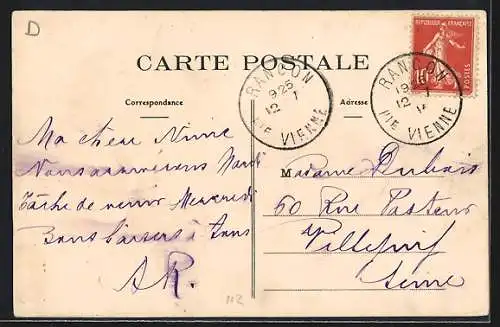 D
CARTE POSTALE
Correspondance
Adresse
REPUBLIQUE FRANÇAISE
POSTES
10
RANCON
9 25
12 1
HTE VIENNE
RANCON
12 1
HTE VIENNE
Ma chere Ninie
Nous arriverons Mardi
Tâche de venir Mercredi
Bons baisers à tous
A.R.
Madame Dubois
60 Rue Pasteur
Villejuif
Seine
112